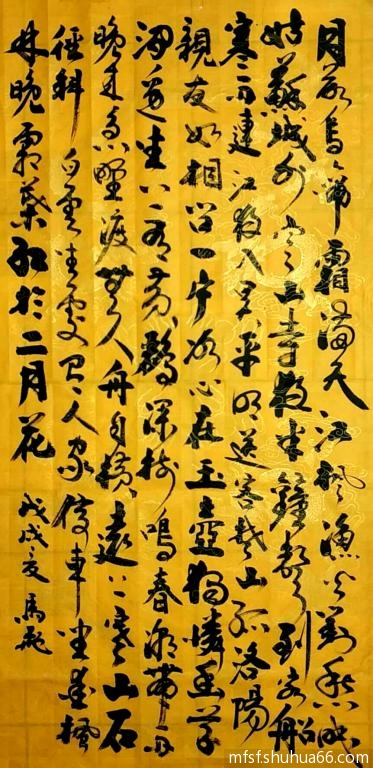 月落烏啼霜滿天江楓漁火對愁眠
姑蘇城外寒山寺夜半鐘聲到客船
寒雨連江夜入吳平明送客楚山孤洛陽
親友如相問一片冰心在玉壺獨憐幽草
澗邊生上有黃鸝深樹鳴春潮帶雨
晚來急野渡無人舟自橫遠上寒山石
徑斜白雲生處有人家停車坐愛楓
林晚霜葉紅於二月花
戊戌夏 馬飛
mfsf.shuhua66.com